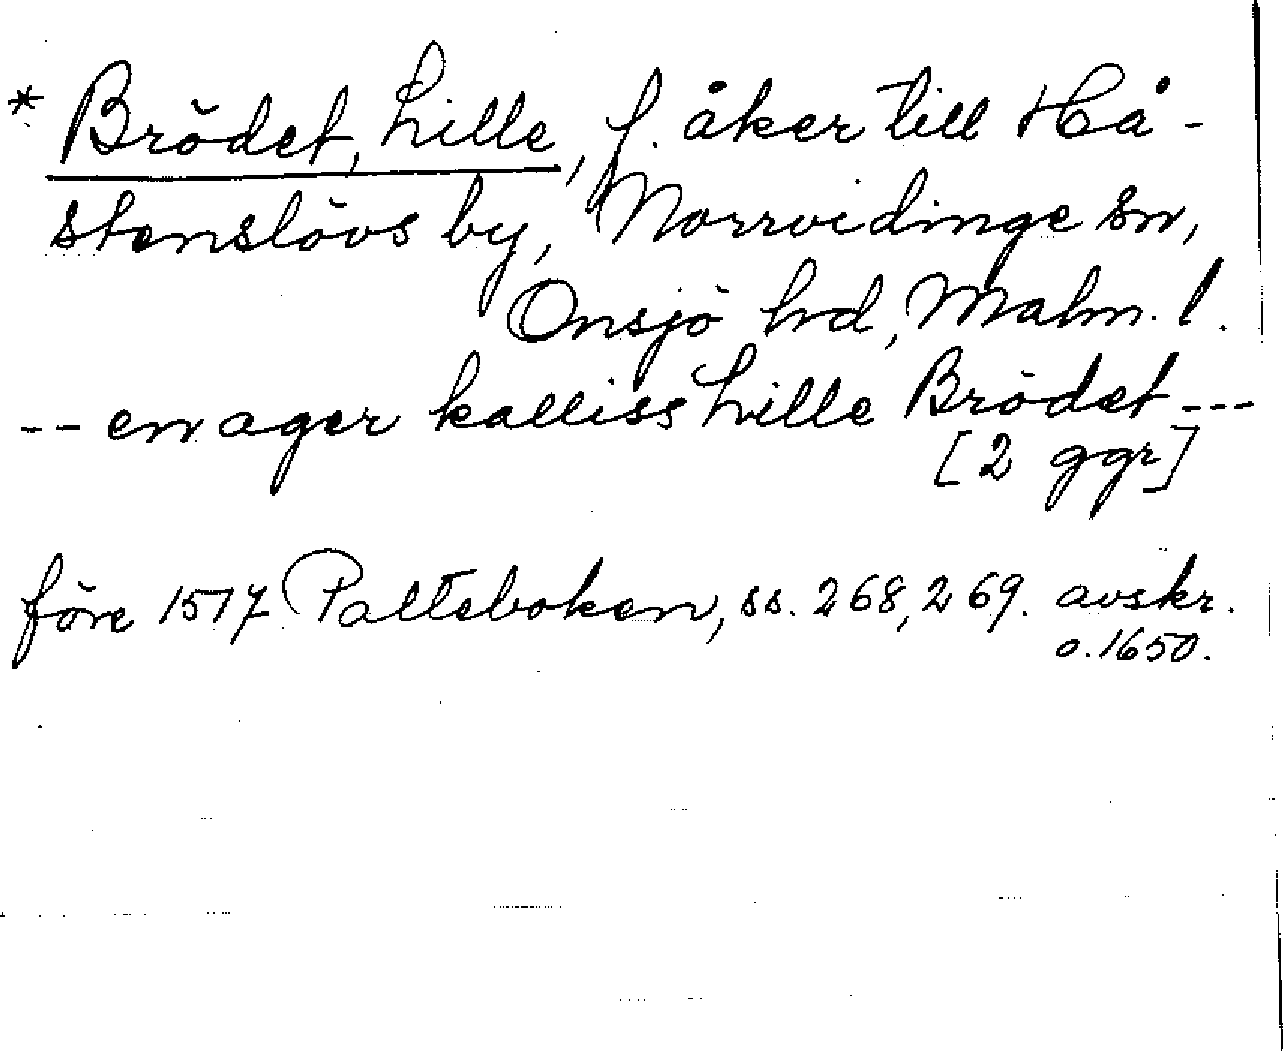 * Brödet, Lille, f. åker till Hå-
stenslövs by, Norrvidinge sn,
Onsjö hd, Malm. l.
-- en ager kalliss Lille Brödet ---
[2 ggr]
före 1517 Palteboken, ss. 268, 269. avskr.
o. 1650.